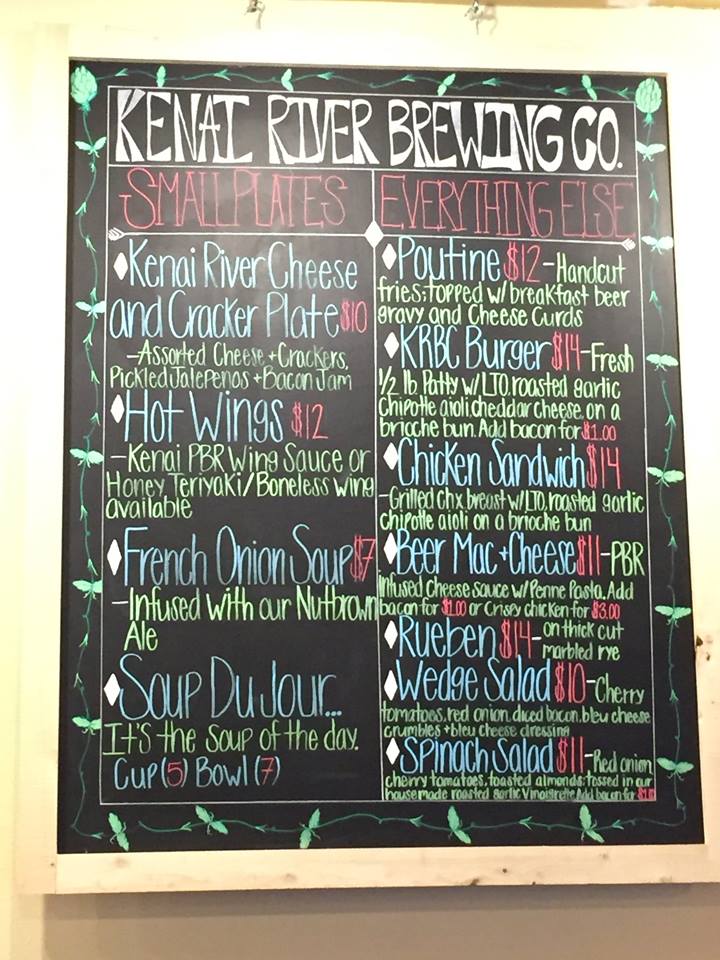 KENAI RIVER BREWING CO.
SMALL PLATES
Kenai River Cheese
and Cracker Plate $10
-Assorted Cheese + Crackers,
Pickled Jalepenos + Bacon Jam
Hot Wings $12
-Kenai PBR Wing Sauce or
Honey Teriyaki/Boneless wing
available
French Onion Soup $7
-Infused with our Nutbrown
Ale
Soup Du Jour...
It's the soup of the day.
Cup (5) Bowl (7)
EVERYTHING ELSE
Poutine $12 -Handcut
fries: topped w/ breakfast beer
gravy and Cheese Curds
KRBC Burger $14 -Fresh
1/2 lb. Patty w/ LTO, roasted garlic
Chipotle aioli, cheddar cheese, on a
brioche bun. Add bacon for $1.00
Chicken Sandwich $14
-Grilled chx breast w/ LTO, roasted garlic
chipotle aioli on a brioche bun
Beer Mac + Cheese $11 -PBR
infused Cheese sauce w/ Penne Pasta. Add
bacon for $1.00 or Crispy chicken for $3.00
Rueben $14 - on thick cut
marbled rye
Wedge Salad $10 -Cherry
tomatoes, red onion, diced bacon, bleu cheese
crumbles + bleu cheese dressing
Spinach Salad $11 -Red onion,
cherry tomatoes, toasted almonds: tossed in our
housemade roasted garlic Vinaigrette Add bacon for